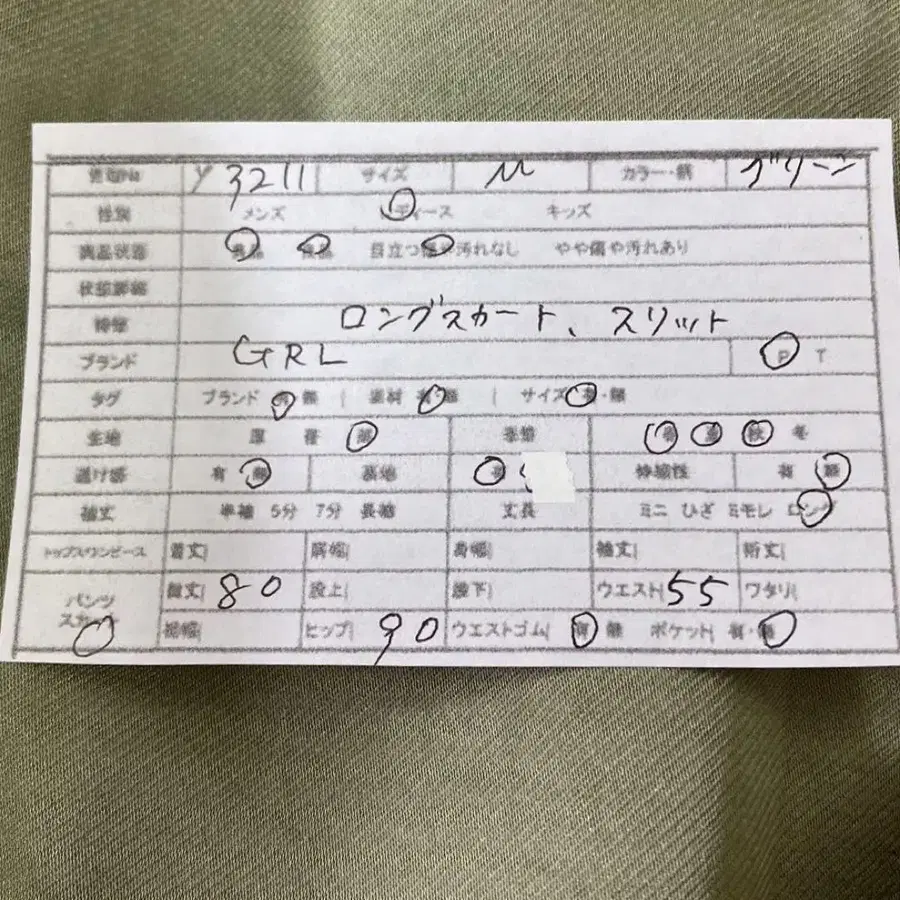 管理No y3211 サイズ M カラー・柄 グリーン
性別 メンズ レディース キッズ
商品状態 美品 良品 目立つ傷や汚れなし やや傷や汚れあり
状態詳細
特徴 ロングスカート、スリット
ブランド GRL P T
タグ ブランド 有・無 | 素材 有・無 | サイズ 有・無
生地 厚 普 薄 季節 春 夏 秋 冬
透け感 有 無 裏地 伸縮性 有 無
袖丈 半袖 5分 7分 長袖 丈長 ミニ ひざ ミモレ ロング
トップスワンピース 着丈| 肩幅| 身幅| 袖丈| 裄丈|
パンツ 総丈| 80 股上| 股下| ウエスト| 55 ワタリ|
スカート 裾幅| ヒップ| 90 ウエストゴム| 有 無 ポケット| 有・無